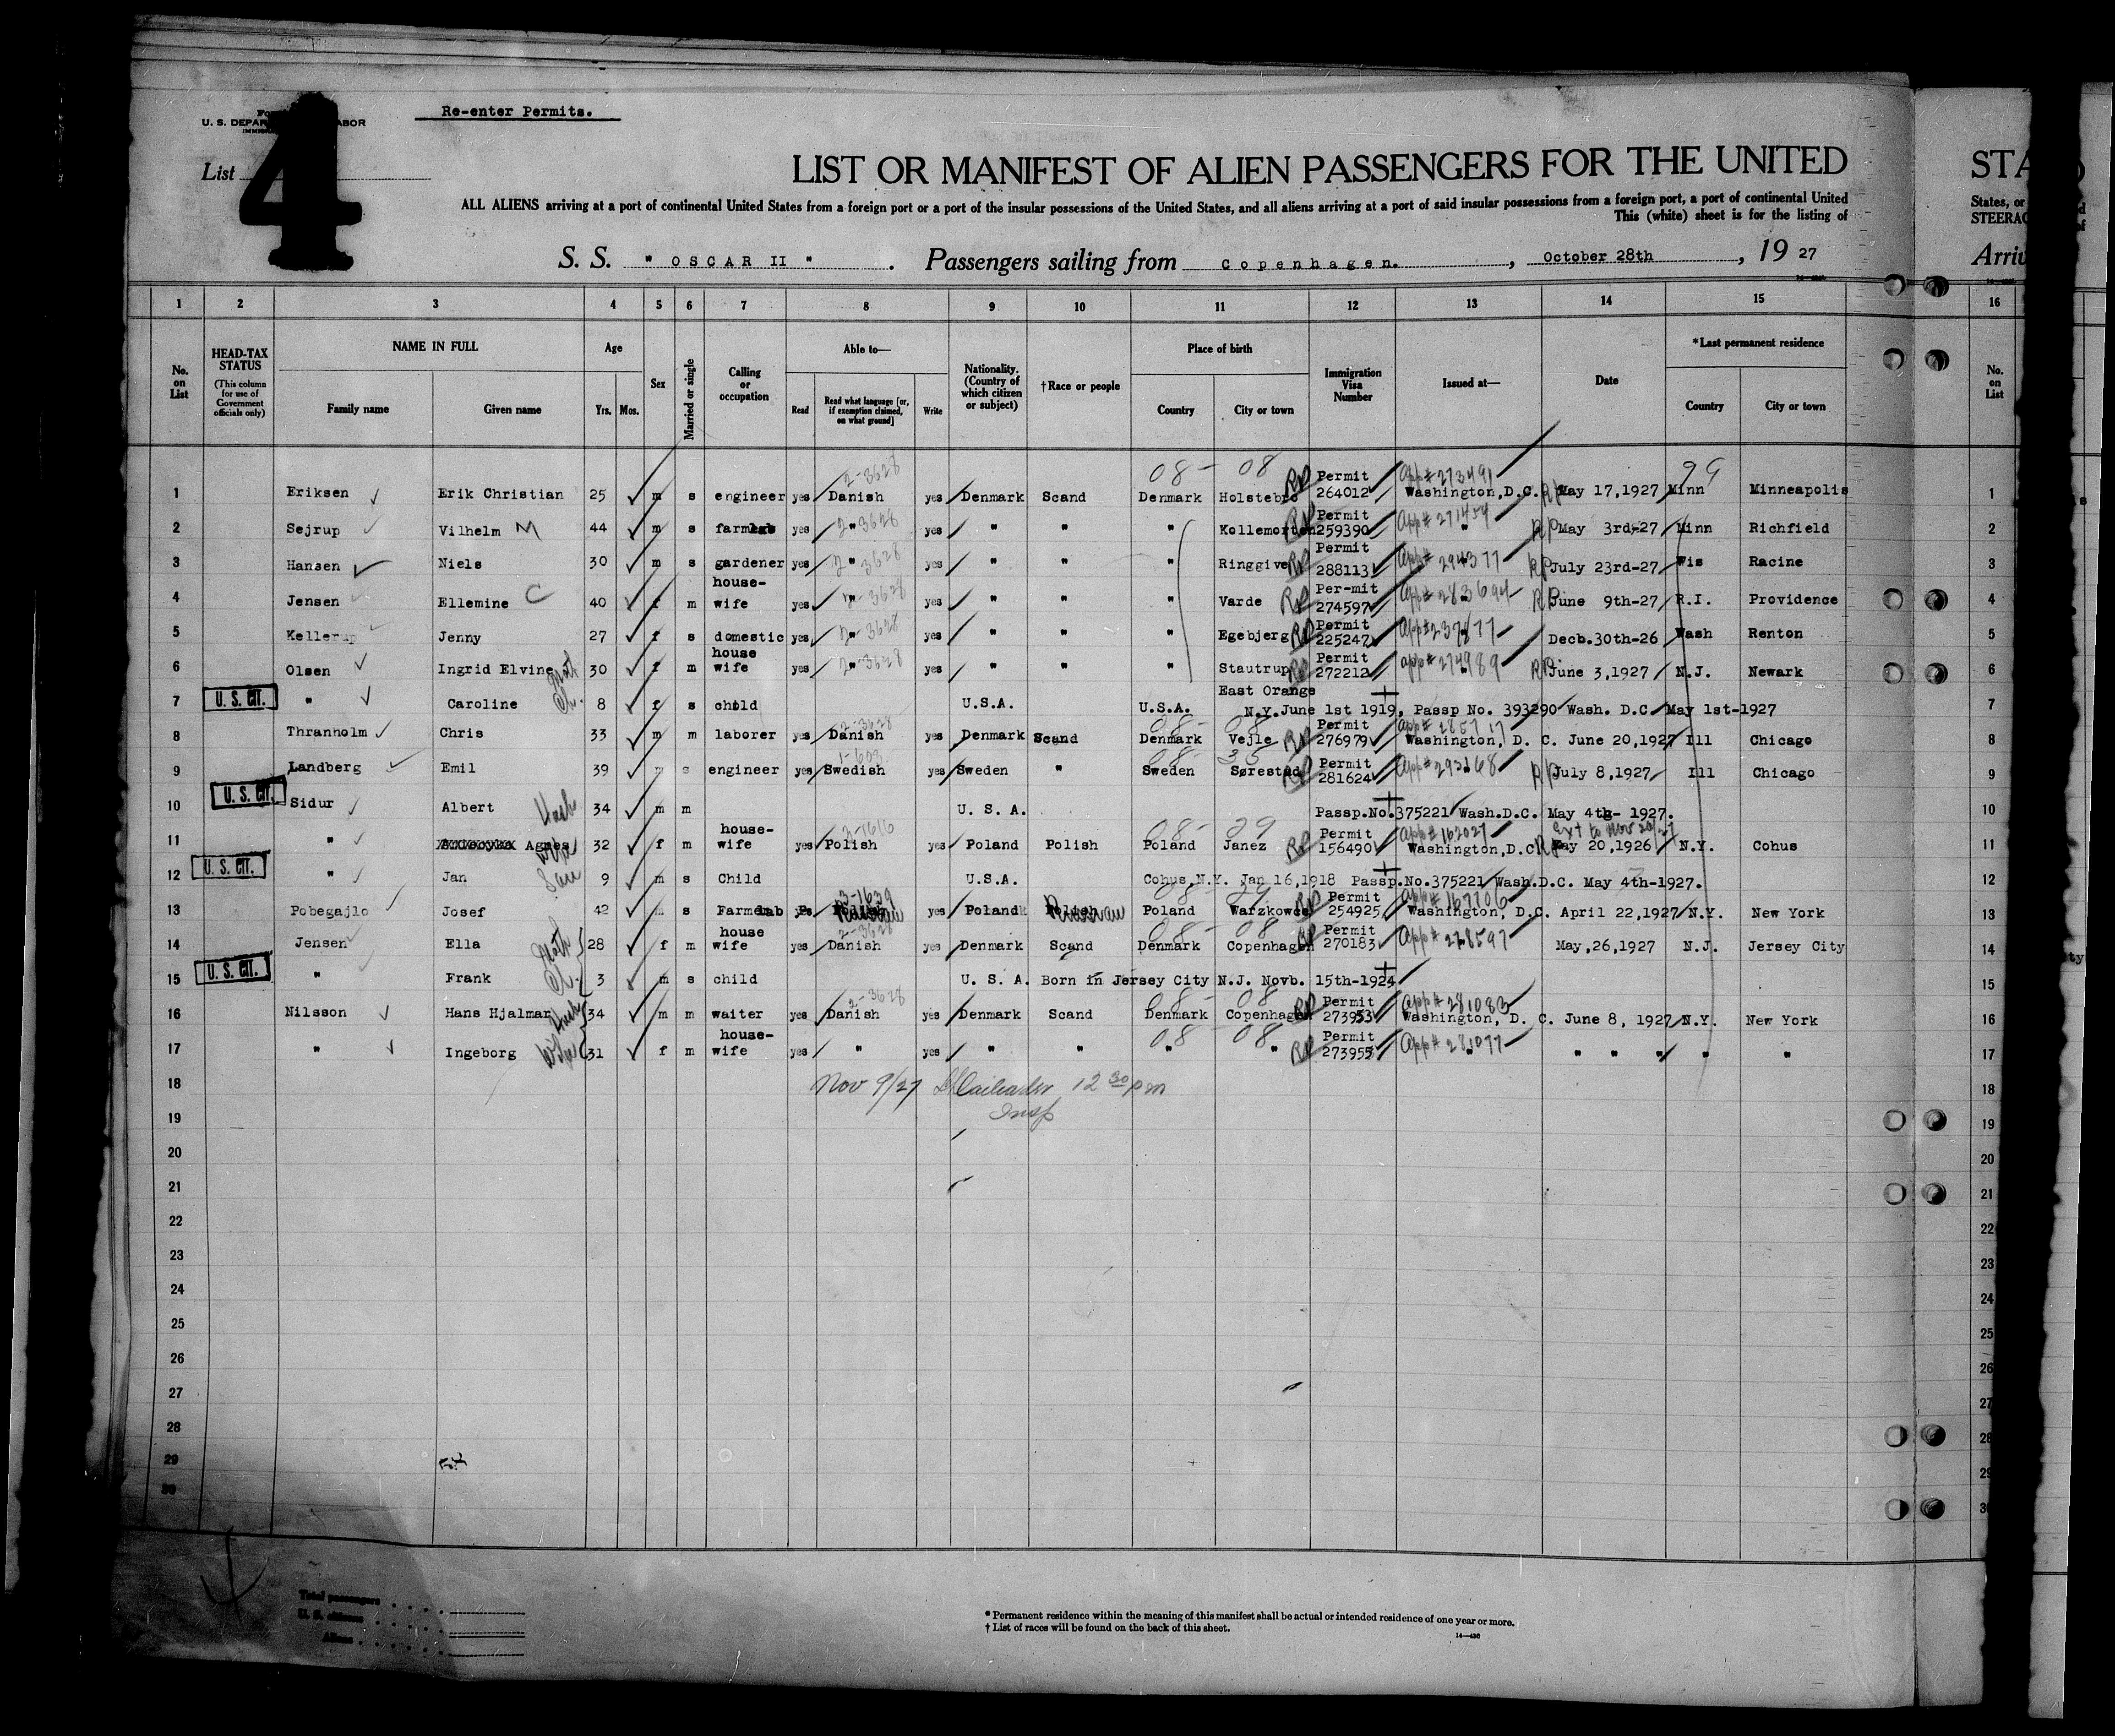 Re-enter Permits.
U. S. DEPAR ABOR
List 4
LIST OR MANIFEST OF ALIEN PASSENGERS FOR THE UNITED
ALL ALIENS arriving at a port of continental United States from a foreign port or a port of the insular possessions of the United States, and all aliens arriving at a port of said insular possessions from a foreign port, a port of continental United
This (white) sheet is for the listing of
S. S. " OSCAR II " . Passengers sailing from Copenhagen. , October 28th , 19 27
STA
States, or
STEERAG
Arriv
1 2 3 4 5 6 7 8 9 10 11 12 13 14 15 16
No. on List
HEAD-TAX STATUS (This column for use of Government officials only)
NAME IN FULL
Family name Given name
Age Yrs. Mos.
Sex
Married or single
Calling or occupation
Able to—
Read Read what language [or, if exemption claimed, on what ground] Write
Nationality. (Country of which citizen or subject)
†Race or people
Place of birth
Country City or town
Immigration Visa Number
Issued at—
Date
*Last permanent residence
Country City or town
No. on List
08- 08 99
1 Eriksen Erik Christian 25 m s engineer yes 2-3628 Danish yes Denmark Scand Denmark Holstebro RP Permit 264012 App# 273491 Washington,D.C. RP May 17,1927 Minn Minneapolis 1
2 Sejrup Vilhelm M 44 m s farmlab yes 2-3628 " yes " " " Kollemorten Permit 259390 App# 271454 " RP May 3rd-27 Minn Richfield 2
3 Hansen Niels 30 m s gardener yes 2-3628 " yes " " " Ringgive RP Permit 288113 App# 294377 RP July 23rd-27 Wis Racine 3
4 Jensen Ellemine C 40 f m house-wife yes 2-3628 " yes " " " Varde RP Per-mit 274597 App# 283694 RP June 9th-27 R.I. Providence 4
5 Kellerup Jenny 27 f s domestic yes 2-3628 " yes " " " Egebjerg RP Permit 225247 App# 237877 Decb.30th-26 Wash Renton 5
6 Olsen Ingrid Elvine Moth 30 f m house wife yes 2-3628 " yes " " " Stautrup RP Permit 272212 App# 274989 RP June 3,1927 N.J. Newark 6
7 U. S. CIT. " Caroline Ch. 8 f s child U.S.A. U.S.A. East Orange N.Y. June 1st 1919, Passp No. 393290 Wash. D.C. May 1st-1927 7
8 Thranholm Chris 33 m m laborer yes 2-3628 Danish yes Denmark Scand 08- 08 Denmark Vejle RP Permit 276979 App# 285717 Washington, D. C. June 20,1927 Ill Chicago 8
9 Landberg Emil 39 m s engineer yes 1-603 Swedish yes Sweden " 08- 35 Sweden Sørestad RP Permit 281624 App# 293168 RP July 8,1927 Ill Chicago 9
10 U. S. CIT. Sidur Albert Husb 34 m m U. S. A. Passp.No.375221 Wash.D.C. May 4th- 1927. 10
11 " Agnes Wife 32 f m house-wife yes 2-1616 Polish yes Poland Polish 08- 29 Poland Janez RP Permit 156490 App# 162027 Washington,D.C. RP Ext to Nov 20/27 May 20,1926 N.Y. Cohus 11
12 U. S. CIT. " Jan Son 9 m s Child U.S.A. Cohus,N.Y. Jan 16,1918 Passp.No.375221 Wash.D.C. May 4th-1927. 12
13 Pobegajlo Josef 42 m s Farmlab yes 3-1639 Russian yes Poland Russian 08- 29 Poland Warzkowce RP Permit 254925 App# 167706 Washington, D.C. April 22,1927 N.Y. New York 13
14 Jensen Ella Moth 28 f m house wife yes 2-3628 Danish yes Denmark Scand 08- 08 Denmark Copenhagen RP Permit 270183 App# 278597 May,26,1927 N.J. Jersey City 14
15 U. S. CIT. " Frank Ch. 3 m s child U. S. A. Born in Jersey City N.J. Novb. 15th-1924 15
16 Nilsson Hans Hjalmar Husb 34 m m waiter yes 2-3628 Danish yes Denmark Scand 08- 08 Denmark Copenhagen RP Permit 273953 App# 281083 Washington, D. C. June 8, 1927 N.Y. New York 16
17 " Ingeborg Wife 31 f m house-wife yes " yes " " 08- 08 " " RP Permit 273955 App# 281077 " " " " " " 17
18 Nov 9/27 12 30 pm 18
19 Insp 19
20 20
21 21
22 22
23 23
24 24
25 25
26 26
27 27
28 28
29 29
30 30
Total passengers
U. S. citizens
Aliens
* Permanent residence within the meaning of this manifest shall be actual or intended residence of one year or more.
† List of races will be found on the back of this sheet.
14—430